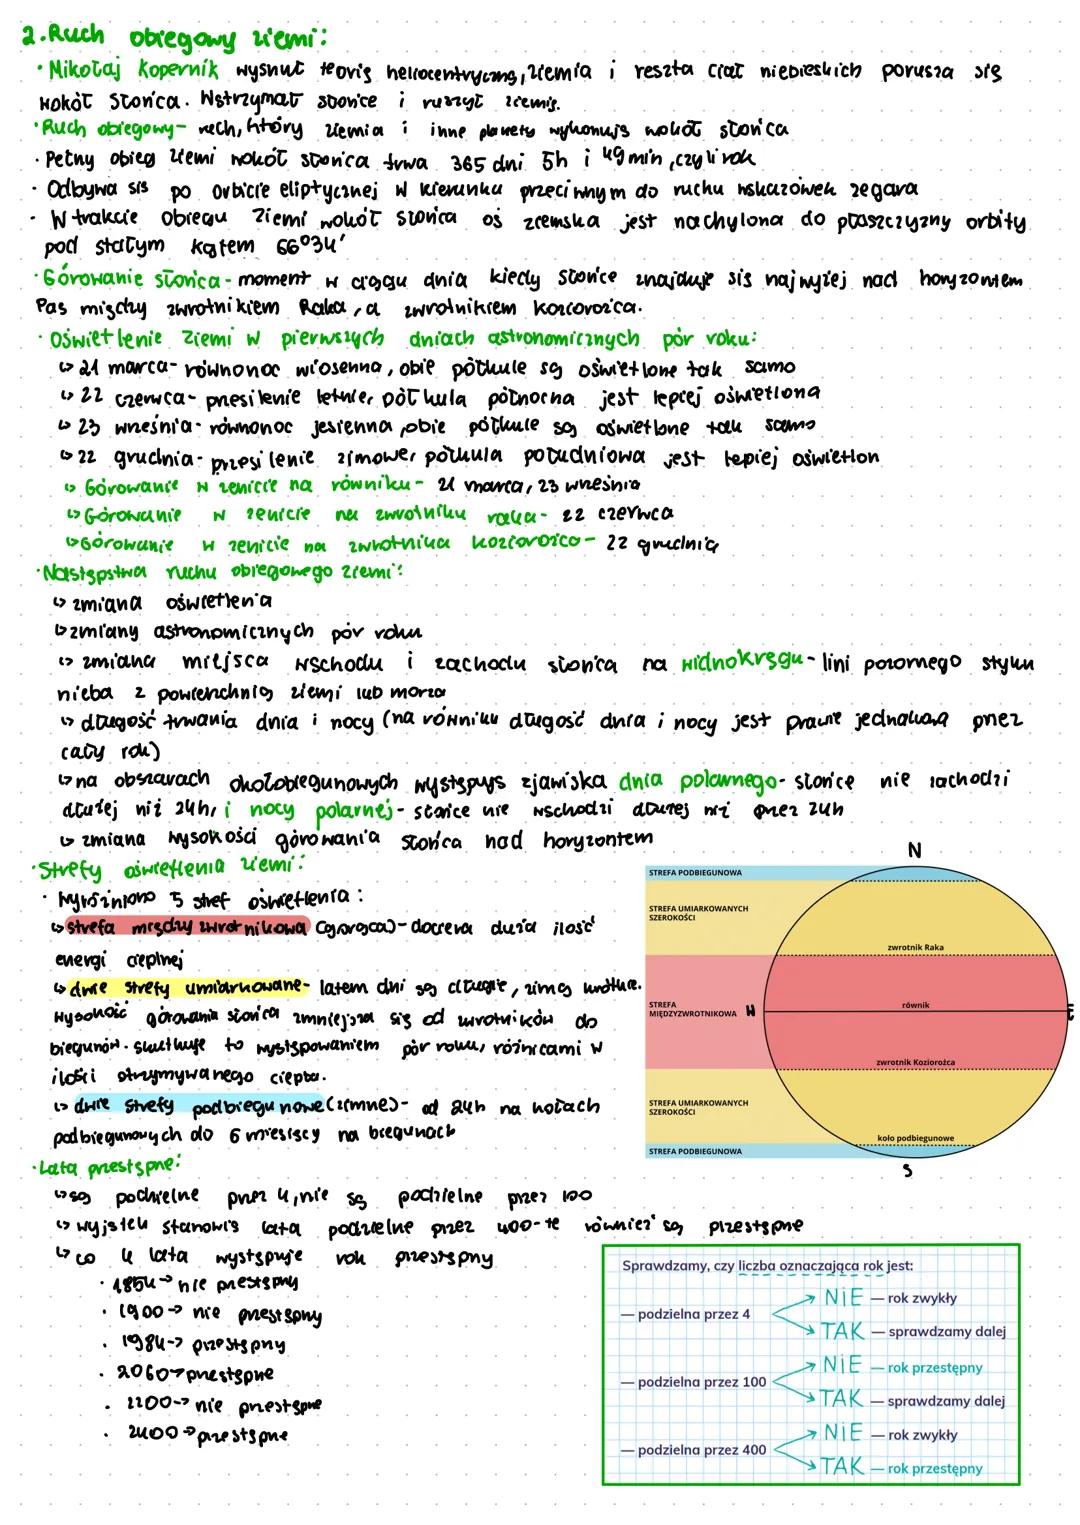 2. Ruch obiegowy ziemi:
· Mikołaj Kopernik wysnuł teorię heliocentryczną, ziemia i reszta ciał niebieskich porusza się
wokół Słońca. Wstrzymał słońce i ruszył ziemię.
· Ruch obiegowy- ruch, który ziemia i inne planety wykonują wokół słońca
· Pełny obieg ziemi wokół słońca trwa 365 dni 5h i 49 min, czyli rok
· Odbywa się po orbicie eliptycznej w kierunku przeciwnym do ruchu wskazówek zegara
· W trakcie obiegu Ziemi wokół słońca oś ziemska jest nachylona do płaszczyzny orbity
pod stałym kątem 66°34'
· Górowanie słońca- moment w ciągu dnia kiedy słońce znajduje się najwyżej nad horyzontem
Pas między zwrotnikiem Raka, a zwrotnikiem koziorożca.
· Oświetlenie Ziemi w pierwszych dniach astronomicznych pór roku:
↳ 21 marca- równonoc wiosenna, obie półkule są oświetlone tak samo
↳ 22 czerwca- presilenie letnie, półkula północna jest lepiej oświetlona
↳ 23 wneśnia- równonoc jesienna, obie półkule są oświetlone tak samo
↳ 22 grudnia- przesilenie zimowe, półkula południowa jest lepiej oświetlon
↳ Górowanie w zenicie na równiku- 21 marca, 23 wneśnia
↳ Górowanie w zenicie na zwrotniku raka- 22 czerwca
↳ Górowanie w zenicie na zwrotnika koziorożca- 22 grudnia
· Następstwa ruchu obiegowego ziemi:
↳ zmiana oświetlenia
↳ zmiany astronomicznych pór roku
↳ zmiana miejsca wschodu i zachodu słońca na widnokręgu- lini pozornego styku
nieba z powierzchnią ziemi lub morza
↳ długość trwania dnia i nocy (na równiku długość dnia i nocy jest prawie jednakowa pnez
cały rok)
↳ na obszarach okołobiegunowych występują zjawiska dnia polarnego- słońce nie zachodzi
dłużej niż 24h, i nocy polarnej- słońce nie wschodzi dłużej niż pnez 24h
↳ zmiana wysokości górowania słońca nad horyzontem
· Strefy oświetlenia ziemi:
· Wyróżniono 5 stref oświetlenia:
↳ strefa międzyzwrotnikowa (gorąca)- dociera duża ilość
energi cieplnej
↳ dwie strefy umiarkowane- latem dni są długie, zimą krótkie.
Wysokość górowania słońca zmniejsza się od zwrotników do
biegunów. skutkuje to występowaniem pór roku, różnicami w
ilości otrzymywanego ciepła.
↳ dwie strefy podbiegunowe (zimne)- od 24h na kołach
podbiegunowych do 6 miesięcy na biegunach
N
STREFA PODBIEGUNOWA
STREFA UMIARKOWANYCH
SZEROKOŚCI
zwrotnik Raka
STREFA
MIĘDZYZWROTNIKOWA
W
równik
E
zwrotnik Koziorożca
STREFA UMIARKOWANYCH
SZEROKOŚCI
koło podbiegunowe
STREFA PODBIEGUNOWA
S
· Lata przestępne:
↳ są podzielne pnez 4, nie są podzielne przez 100
↳ wyjątek stanowią lata podzielne przez 400- te również są przestępne
↳ co 4 lata występuje rok przestępny
· 1854 → nie pnestępny
· 1900 → nie pnestępny
· 1984 → przestępny
· 2060 → pnestępne
· 2200 → nie pnestępne
· 2400 → przestępne
Sprawdzamy, czy liczba oznaczająca rok jest:
— podzielna przez 4
NIE — rok zwykły
TAK — sprawdzamy dalej
— podzielna przez 100
NIE — rok przestępny
TAK — sprawdzamy dalej
— podzielna przez 400
NIE — rok zwykły
TAK — rok przestępny